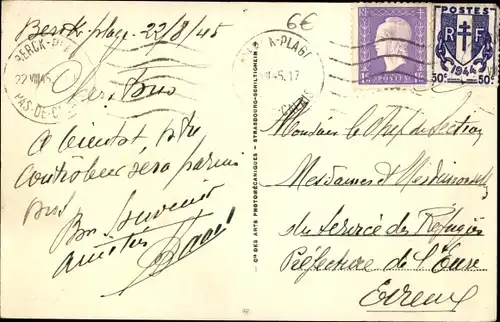 Berck-plage 22/8/45
6€
BERCK-P
22 VIII 45
PAS-DE-C
K-PLAGE
CALAIS
POSTES
RF
1944
50c 50c
A bientôt, votre
contrôleur sera parmi
vous
Bon souvenir
amitiés
Cie DES ARTS PHOTOMÉCANIQUES - STRASBOURG-SCHILTIGHEIM
Monsieur le Chef de Section
Mesdames et Mesdemoiselles
du Service des Réfugiés
Préfecture de l'Eure
Evreux